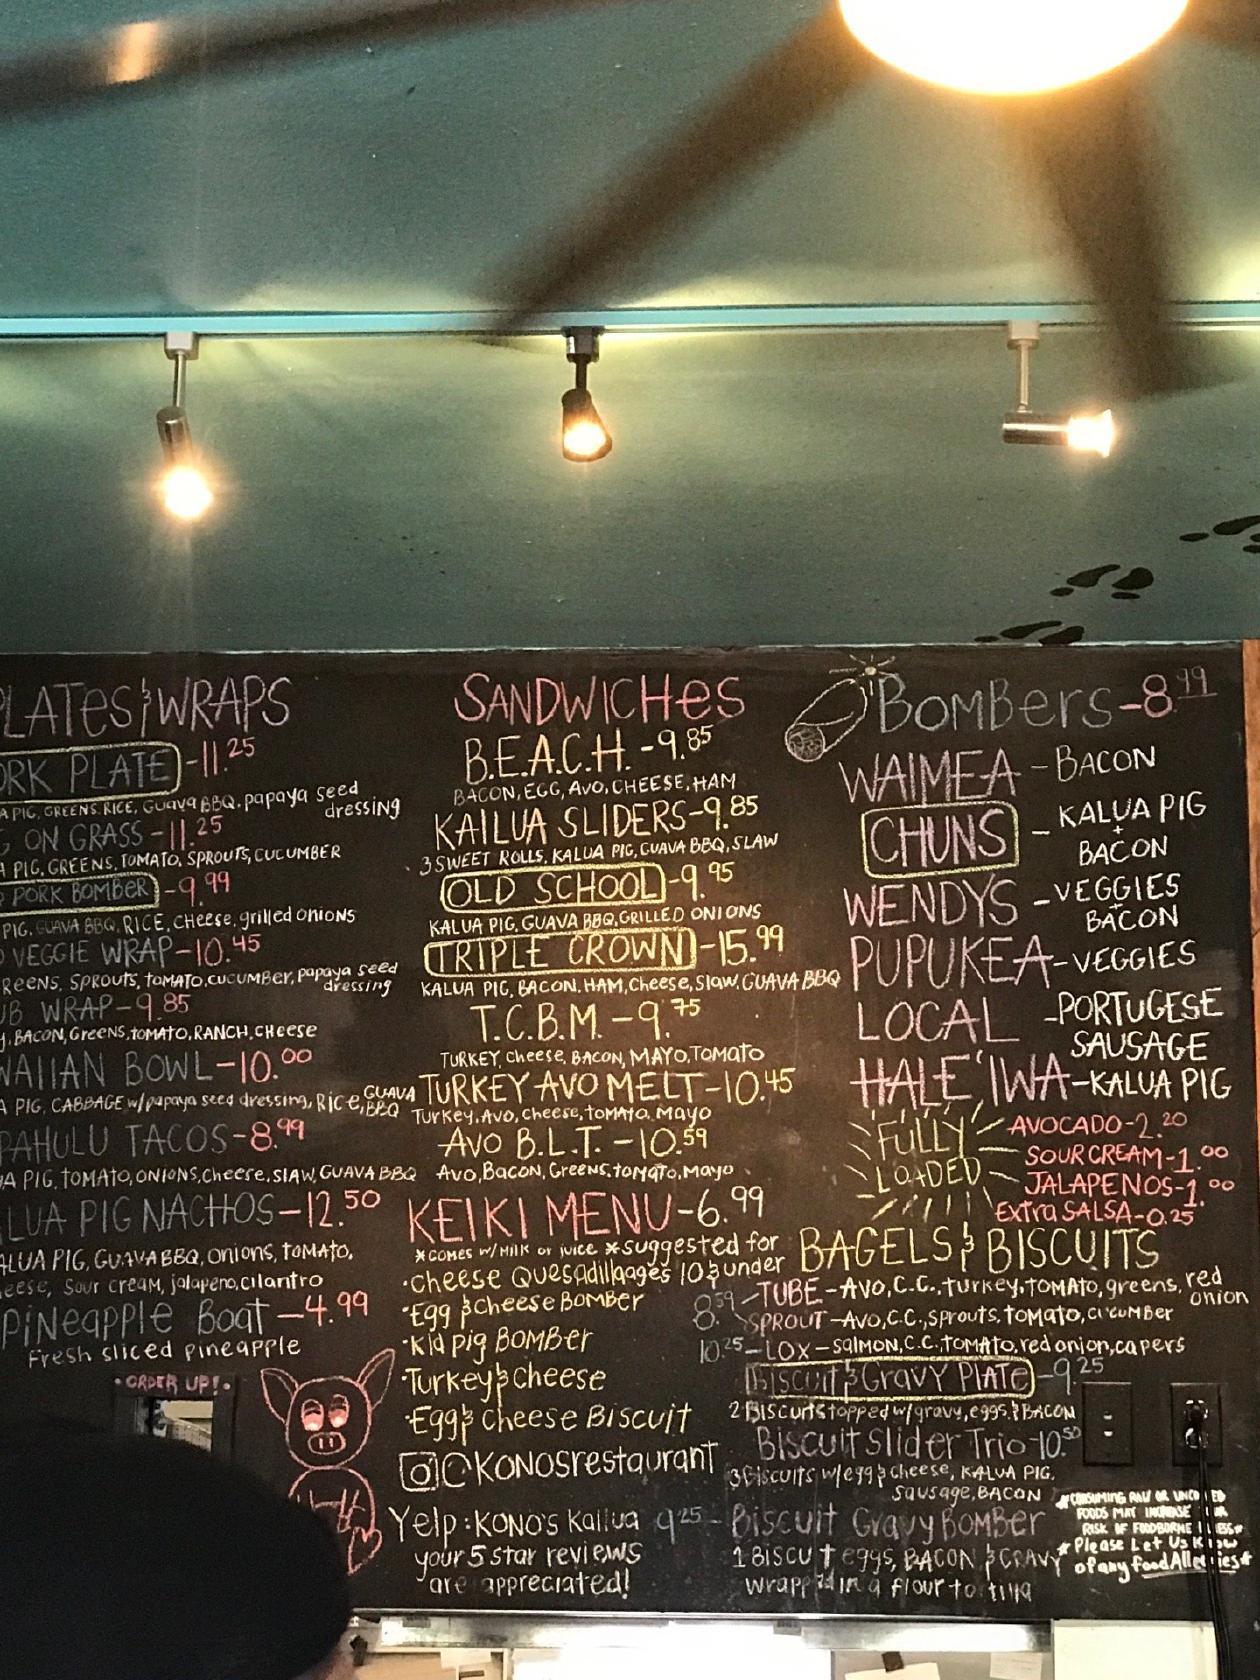 PLATES & WRAPS
PORK PLATE -11.25
PIG, GREENS, RICE, GUAVA BBQ, papaya seed
dressing
ON GRASS -11.25
PIG, GREENS, TOMATO, SPROUTS, CUCUMBER
PORK BOMBER -9.99
PIG, GUAVA BBQ, RICE, cheese, grilled onions
VEGGIE WRAP -10.45
GREENS, SPROUTS, TOMATO, CUCUMBER, papaya seed
dressing
WRAP -9.85
BACON, GREENS, TOMATO, RANCH, CHEESE
HAWAIIAN BOWL -10.00
PIG, CABBAGE w/papaya seed dressing, Rice, GUAVA
BBQ
KAPAHULU TACOS -8.99
PIG, TOMATO, ONIONS, cheese, SLAW, GUAVA BBQ
KALUA PIG NACHOS -12.50
KALUA PIG, GUAVA BBQ, onions, TOMATO,
cheese, sour cream, jalapeno, cilantro
Pineapple Boat -4.99
Fresh sliced pineapple
ORDER UP!
SANDWICHES
B.E.A.C.H. -9.85
BACON, EGG, AVO, CHEESE, HAM
KAILUA SLIDERS -9.85
3 SWEET ROLLS, KALUA PIG, GUAVA BBQ, SLAW
OLD SCHOOL -9.95
KALUA PIG, GUAVA BBQ, GRILLED ONIONS
TRIPLE CROWN -15.99
KALUA PIG, BACON, HAM, Cheese, Slaw, GUAVA BBQ
T.C.B.M. -9.75
TURKEY, cheese, BACON, MAYO, TOMATO
TURKEY AVO MELT -10.45
Turkey, Avo, cheese, tomato, mayo
AVO B.L.T. -10.59
Avo, Bacon, Greens, tomato, Mayo
KEIKI MENU -6.99
*comes w/ milk or juice *suggested for
ages 10 & under
·Cheese Quesadilla
·Egg & cheese BOMBER
·Kid pig BOMBER
·Turkey & cheese
·Egg & Cheese Biscuit
@KONOSrestaurant
Yelp: KONO'S Kailua
your 5 star reviews
are appreciated!
BOMBERS -8.99
WAIMEA - BACON
CHUNS - KALUA PIG
+
BACON
WENDYS - VEGGIES
+
BACON
PUPUKEA - VEGGIES
LOCAL - PORTUGESE
SAUSAGE
HALE'IWA - KALUA PIG
FULLY
LOADED
AVOCADO -2.20
SOUR CREAM -1.00
JALAPENOS -1.00
Extra SALSA -0.25
BAGELS & BISCUITS
8.59
TUBE - AVO, C.C., turkey, tomato, greens, red
onion
SPROUT - Avo, C.C., sprouts, tomato, cucumber
10.25 - LOX - salmon, C.C., tomato, red onion, capers
Biscuit & Gravy PLATE -9.25
2 Biscuits topped w/ gravy, eggs, & BACON
Biscuit Slider Trio -10.50
3 Biscuits w/ egg & cheese, KALUA PIG,
Sausage, BACON
9.25 - Biscuit Gravy BOMBER
1 BISCUIT eggs, BACON & GRAVY
wrapped in a flour tortilla
*CONSUMING RAW OR UNCOOKED
FOODS MAY INCREASE YOUR
RISK OF FOODBORNE ILLNESS*
*Please Let Us Know
of any food Allergies*